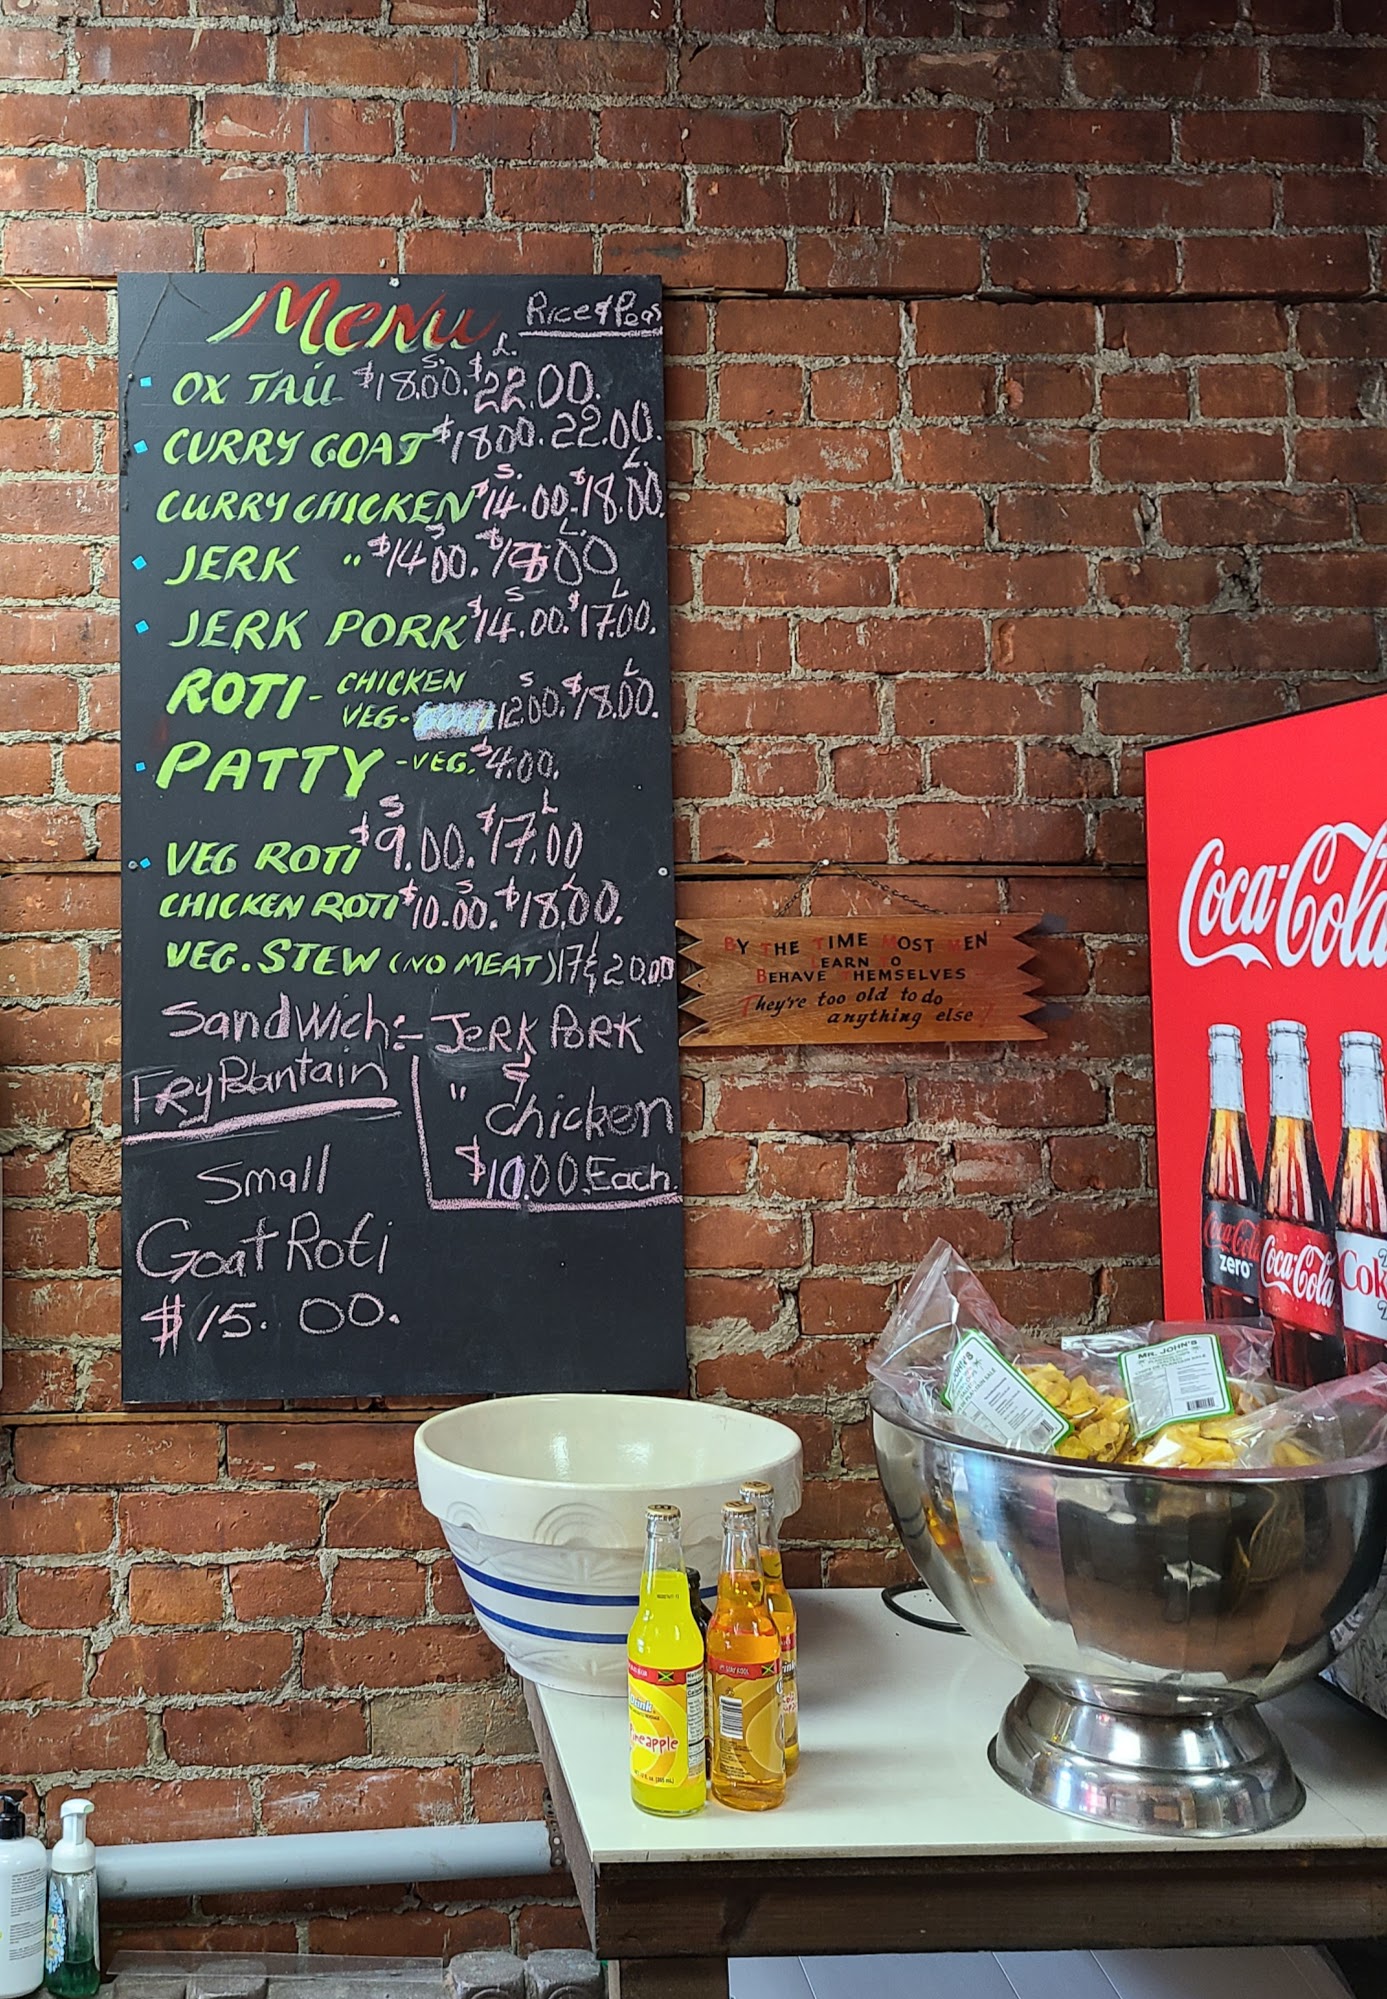 Menu Rice & Peas
S. L.
OX TAIL $18.00. $22.00.
CURRY GOAT $1800. 22.00.
S. L.
CURRY CHICKEN $14.00. $18.00.
S L.
JERK " $14.00. $ 00
S L
JERK PORK $14.00. $17.00.
S L
ROTI - CHICKEN
VEG- 12.00. $18.00.
PATTY - VEG. $4.00.
S L
VEG ROTI $9.00. $17.00
S L
CHICKEN ROTI $10.00. $18.00.
L
VEG. STEW (NO MEAT) 17 & 20.00
Sandwich:- JERK PORK
Fry Plantain
S
" chicken
$10.00. Each.
Small
Goat Roti
$15.00.
BY THE TIME MOST MEN
LEARN O
BEHAVE THEMSELVES
They're too old to do
anything else!
Coca-Cola
Coca-Cola
zero
Coca-Cola
Coke
JOHN'S
MR. JOHN'S
Drink
Pineapple